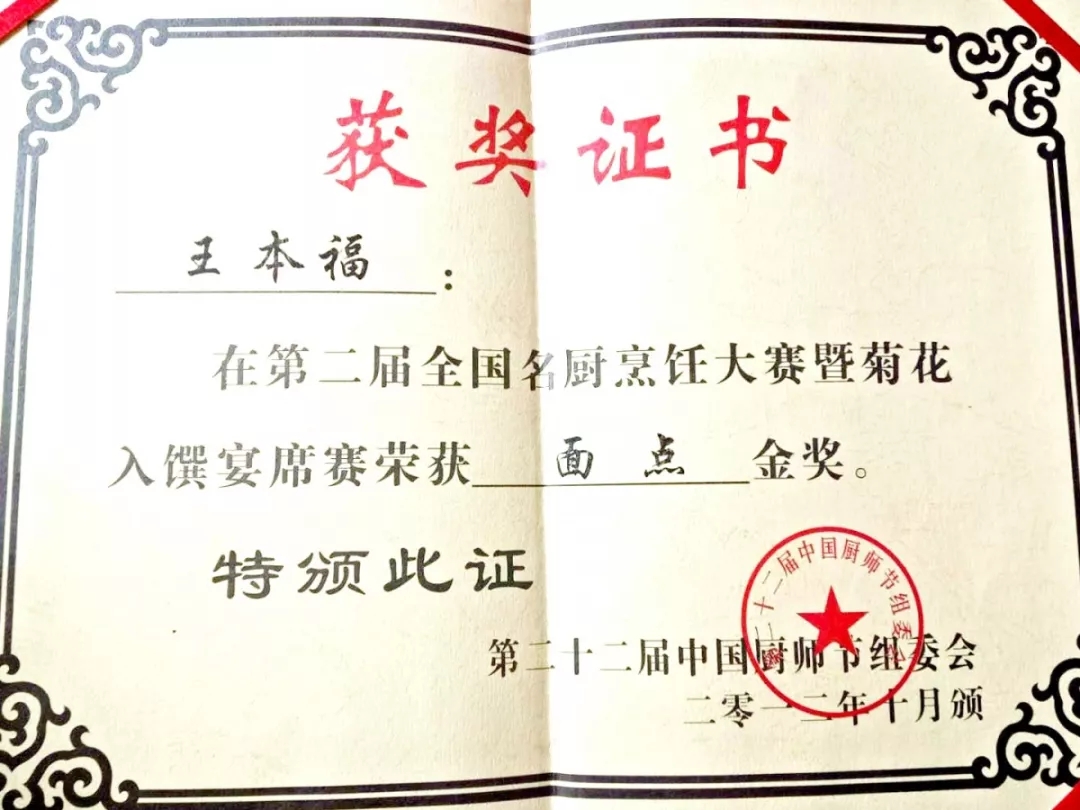 获奖证书
王本福：
在第二届全国名厨烹饪大赛暨菊花
入馔宴席赛荣获 面点 金奖。
特颁此证
第二十二届中国厨师节组委会
二零一二年十月颁
第二十二届中国厨师节组委会